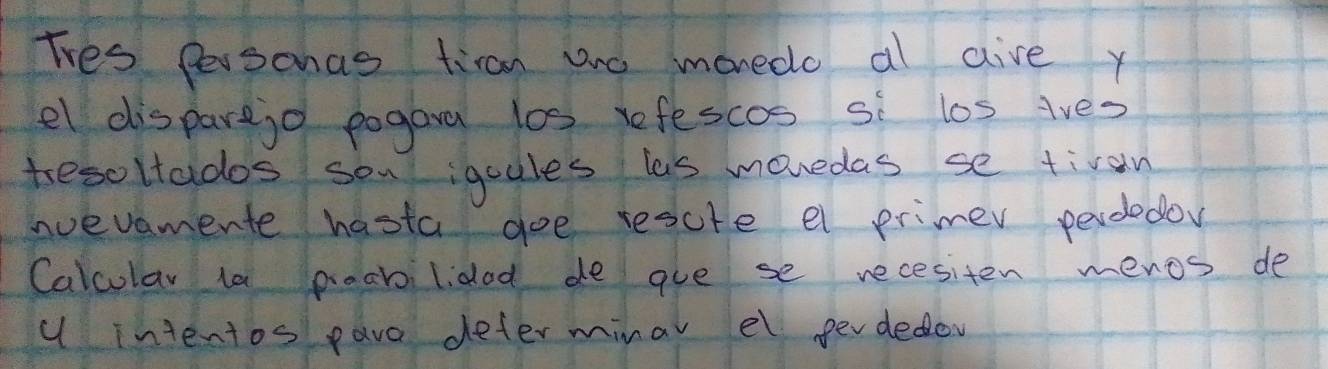 Tres personas tiran una moneda al aire y
el disparejo pagara los refescos si los tres
tresoltados son igoules las monedas se tiran
nuevamente hasta que resulte el primer perdedor
Calcular la proabilidad de que se necesiten menos de
4 intentos para determinar el perdedor